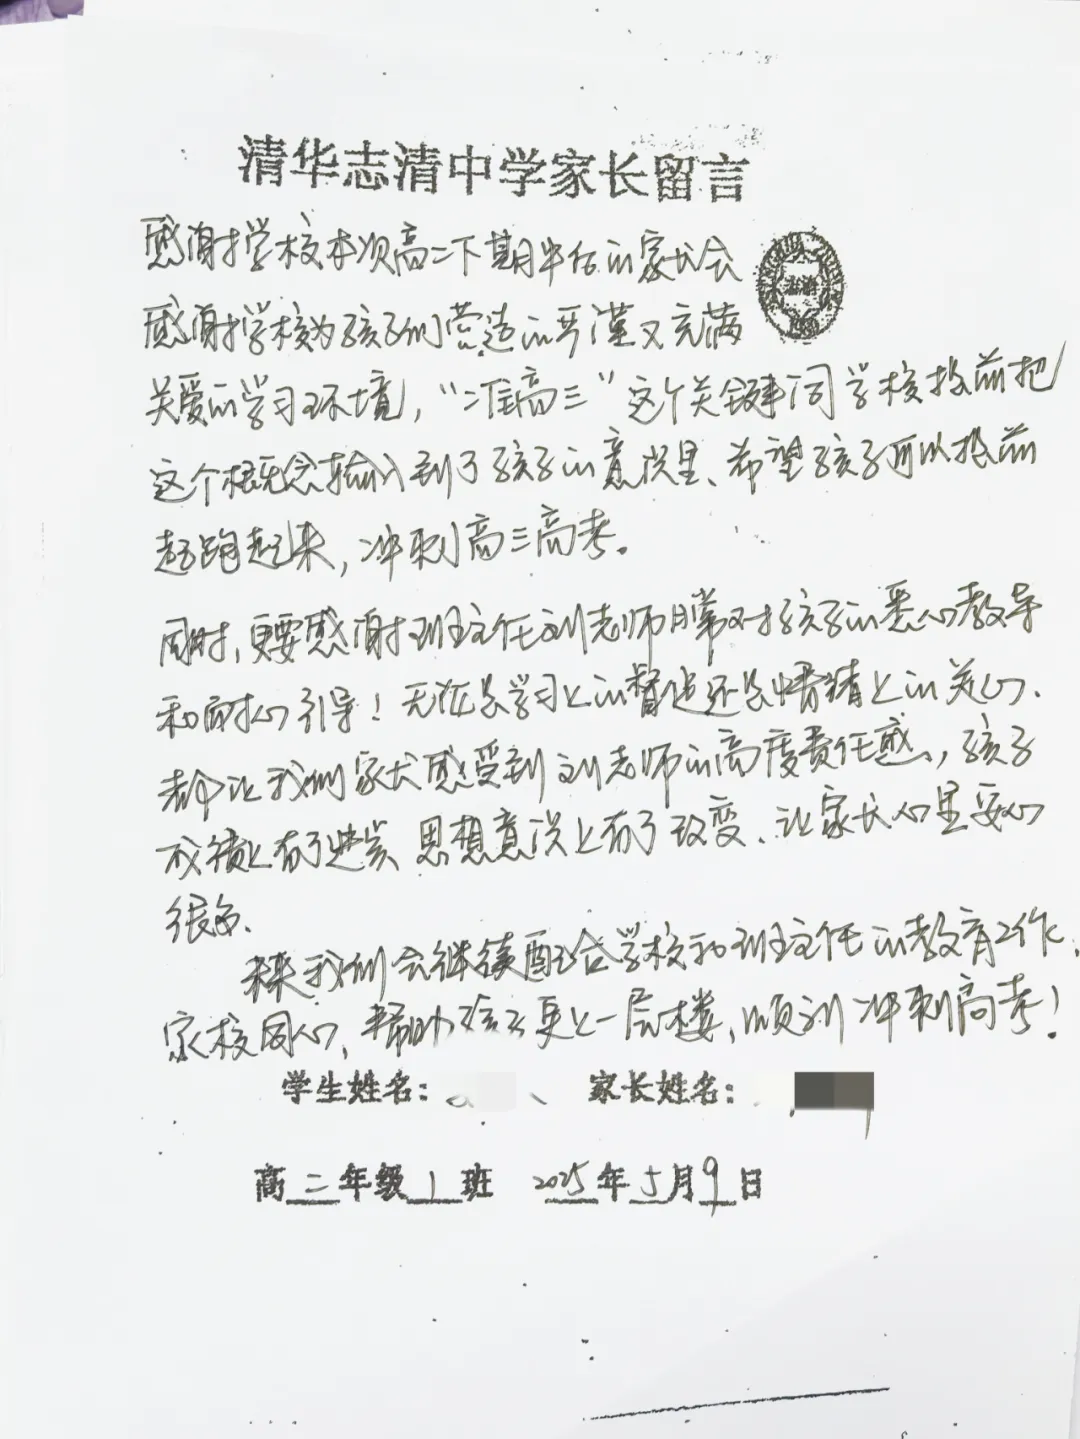 清华志清中学家长留言
感谢学校本次高二下期半程的家长会
感谢学校为孩子们营造的严谨又充满
关爱的学习环境，“准高三”这个关键词学校提前把
这个概念输入到了孩子的意识里、希望孩子可以提前
起跑起来，冲刺高三高考。
同时，更要感谢班主任刘老师日常对孩子的悉心教导
和耐心引导！无论是学习上的督促还是情绪上的关心、
都让我们家长感受到刘老师的高度责任感，孩子
成绩上有了进步、思想意识上有了改变、让家长心里安心
很多.
未来我们会继续配合学校和班主任的教育工作.
家校同心，帮助孩子更上一层楼，顺利冲刺高考！
学生姓名： 家长姓名：
高二年级1班 2025年5月9日